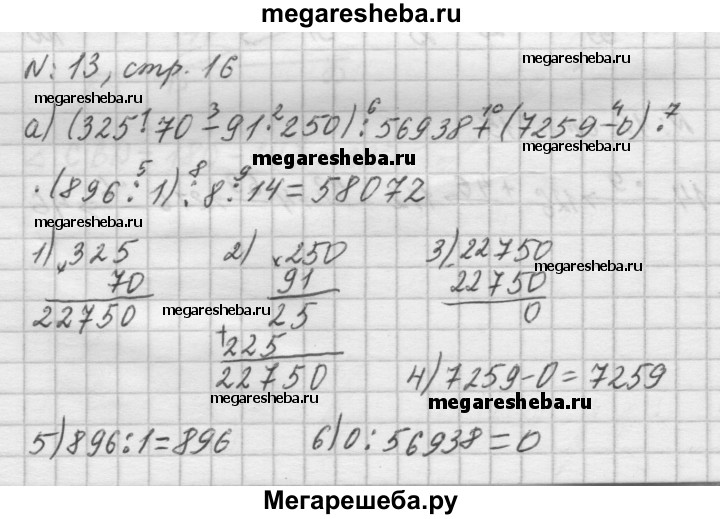 megaresheba.ru
N: 13, стр. 16
megaresheba.ru
megaresheba.ru
а) (325·70 - 91·250) : 56938 + (7259 - 0) ·
1 3 2 6 10 4 7
megaresheba.ru
· (896 : 1) : 8 : 14 = 58072
5 8 9
1) × 325
70
22750
2) × 250
91
25
+ 225
22750
3) - 22750
22750
0
megaresheba.ru
megaresheba.ru
megaresheba.ru
4) 7259 - 0 = 7259
megaresheba.ru
megaresheba.ru
5) 896 : 1 = 896
6) 0 : 56938 = 0
Мегарешеба.ру